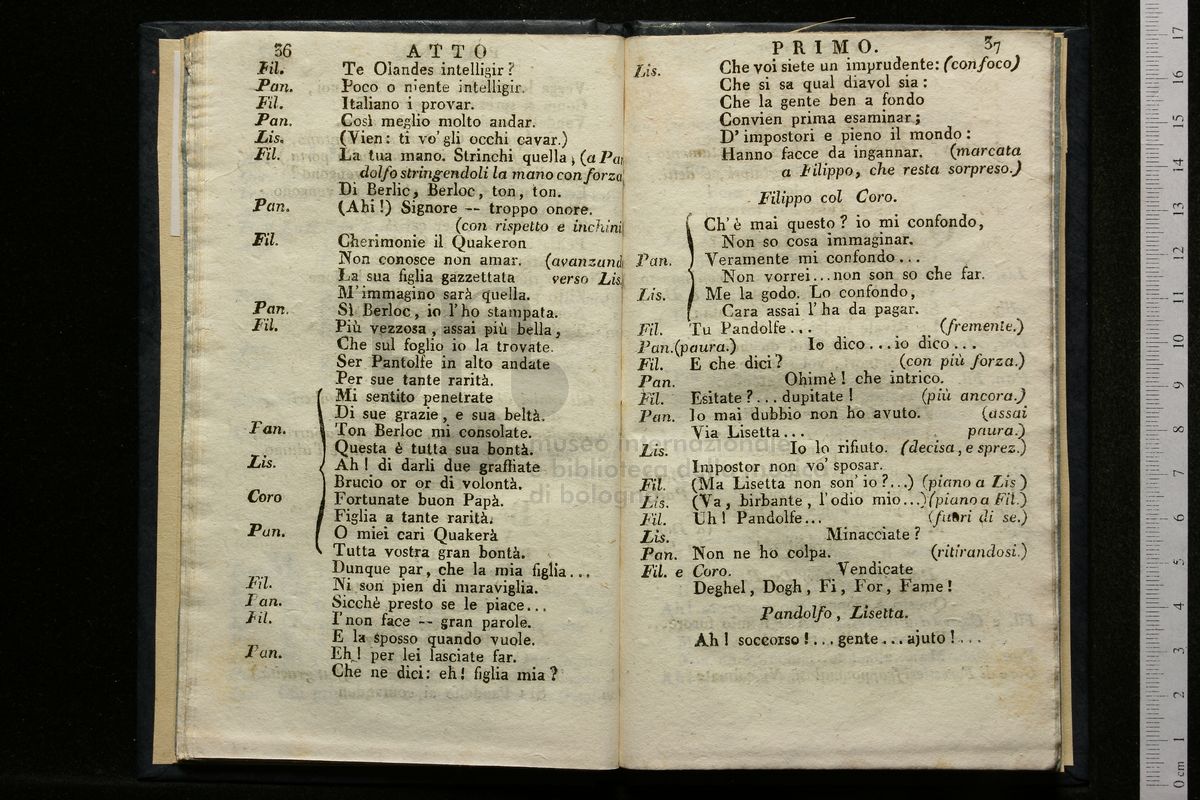 36 ATTO
Fil. Te Olandes intelligir?
Pan. Poco o niente intelligir.
Fil. Italiano i provar.
Pan. Così meglio molto andar.
Lis. (Vien: ti vo' gli occhi cavar.)
Fil. La tua mano. Strinchi quella, (a Pan
dolfo stringendoli la mano con forza
Di Berlic, Berloc, ton, ton.
Pan. (Ahi!) Signore -- troppo onore.
(con rispetto e inchini
Fil. Cherimonie il Quakeron
Non conosce non amar. (avanzand
La sua figlia gazzettata verso Lis.
M'immagino sarà quella.
Pan. Sì Berloc, io l'ho stampata.
Fil. Più vezzosa, assai più bella,
Che sul foglio io la trovate.
Ser Pantolfe in alto andate
Per sue tante rarità.
Mi sentito penetrate
Di sue grazie, e sua beltà.
Pan. Ton Berloc mi consolate.
Questa è tutta sua bontà.
Lis. Ah! di darli due graffiate
Brucio or or di volontà.
Coro Fortunate buon Papà.
Figlia a tante rarità.
Pan. O miei cari Quakerà
Tutta vostra gran bontà.
Dunque par, che la mia figlia...
Fil. Ni son pien di maraviglia.
Pan. Sicchè presto se le piace...
Fil. I'non face -- gran parole.
E la sposso quando vuole.
Pan. Eh! per lei lasciate far.
Che ne dici: eh! figlia mia?
PRIMO. 37
Lis. Che voi siete un imprudente: (con foco)
Che si sa qual diavol sia:
Che la gente ben a fondo
Convien prima esaminar;
D'impostori e pieno il mondo:
Hanno facce da ingannar. (marcata
a Filippo, che resta sorpreso.)
Filippo col Coro.
Ch'è mai questo? io mi confondo,
Non so cosa immaginar.
Pan. Veramente mi confondo...
Non vorrei...non son so che far.
Lis. Me la godo. Lo confondo,
Cara assai l'ha da pagar.
Fil. Tu Pandolfe... (fremente.)
Pan. (paura.) Io dico...io dico...
Fil. E che dici? (con più forza.)
Pan. Ohimè! che intrico.
Fil. Esitate?...dupitate! (più ancora.)
Pan. Io mai dubbio non ho avuto. (assai
Via Lisetta... paura.)
Lis. Io lo rifiuto. (decisa, e sprez.)
Impostor non vo' sposar.
Fil. (Ma Lisetta non son' io?...) (piano a Lis)
Lis. (Va, birbante, l'odio mio...)(piano a Fil.)
Fil. Uh! Pandolfe... (fuori di se.)
Lis. Minacciate?
Pan. Non ne ho colpa. (ritirandosi.)
Fil. e Coro. Vendicate
Deghel, Dogh, Fi, For, Fame!
Pandolfo, Lisetta.
Ah! soccorso!...gente...ajuto!...
museo internazionale
biblioteca
di bologna
17
16
15
14
13
12
11
10
9
8
7
6
5
4
3
2
1
0 cm